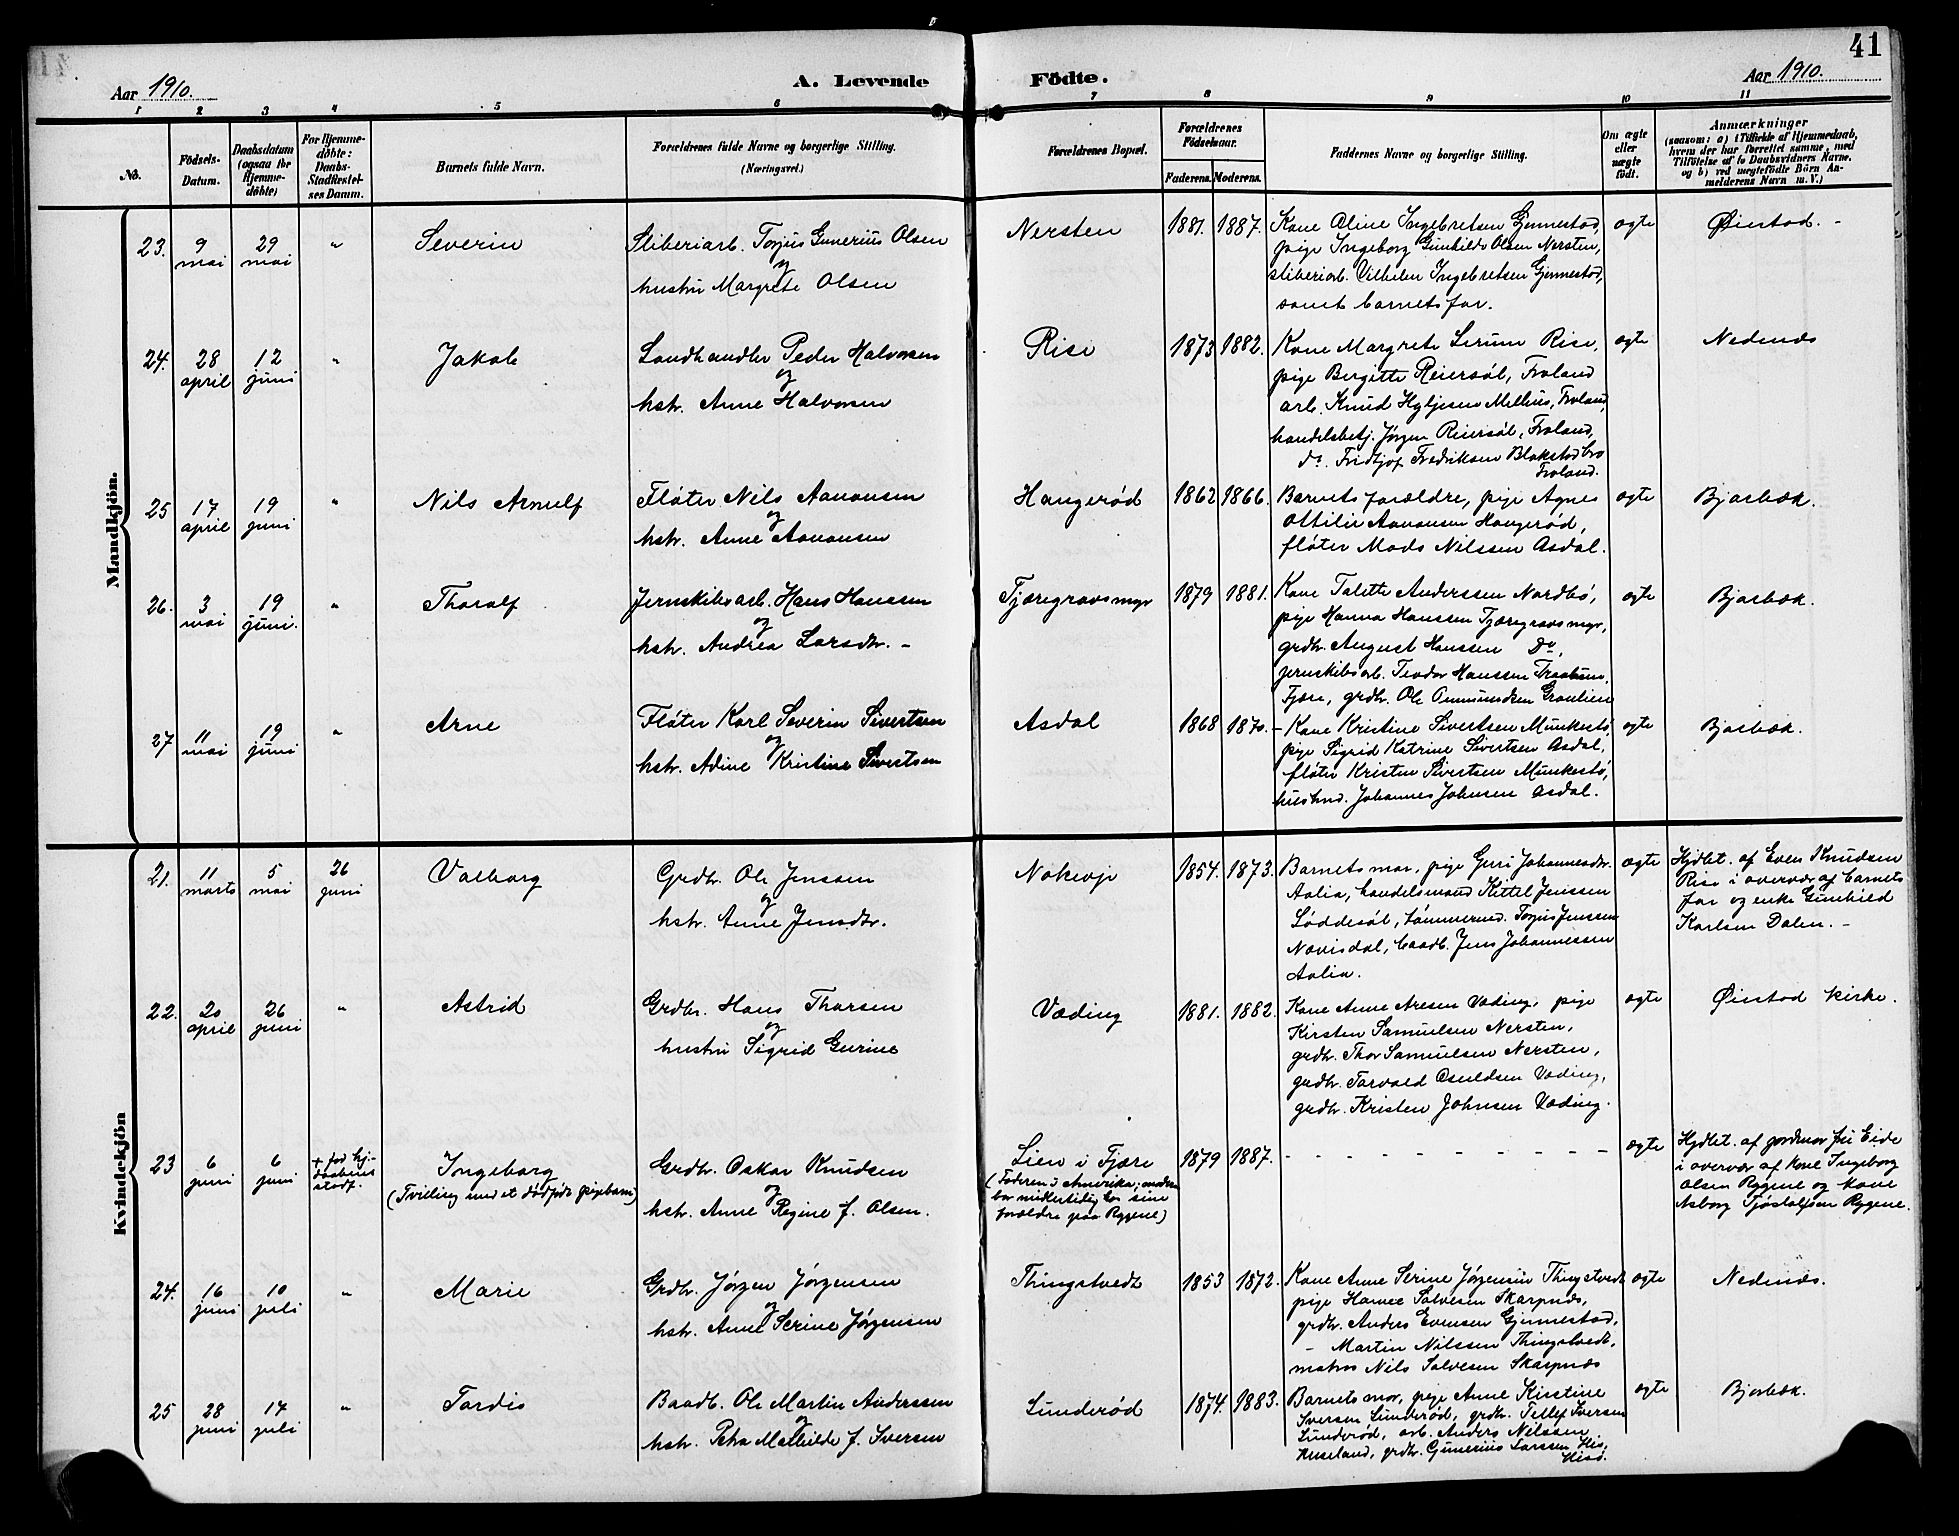 41
Aar 1910.
A. Levende
Födte.
Aar 1910.
1 2 3 4 5 6 7 8 9 10 11
No.
Födsels-
Datum.
Daabsdatum
(ogsaa for
Hjemme-
döbte)
For Hjemme-
döbte:
Daabs-
Stadfæstel-
ses Datum.
Barnets fulde Navn.
Forældrenes fulde Navne og borgerlige Stilling.
(Næringsvei.)
Forældrenes Bopæl.
Forældrenes
Födselsaar.
Faderens. Moderens.
Faddernes Navne og borgerlige Stilling.
Om ægte
eller
uægte
födt.
Anmærkninger
(saasom: a) i Tilfælde af Hjemmedaab,
hvem der har forrettet samme, med
Tilföielse af to Daabsvidners Navne,
og b) ved uægtefödte Börn An-
melderens Navn m. V.)
Mandkjön.
23. 9 mai 29 mai " Severin
Sliberiarb. Torjus Gunerius Olsen
og
hustru Margrete Olsen
Nersten 1881. 1887.
Kone Oline Ingebretsen Gjennestad,
pige Ingeborg Gunhilds Olsen Nersten,
sliberiarb. Vilhelm Ingebretsen Gjennestad,
samt barnets far.
ægte Øiestad. -
24. 28 april 12 juni " Jakob
Landhandler Peder Halvorsen
og
hstr. Anne Halvorsen
Rise 1873 1882.
Kone Margrete Serum Rise,
pige Bergitte Reiersøl, Froland
arb. Knud Hyljesen Mellius, Froland,
handelsbetj. Jørgen Reiersøl, Froland,
Do. Fridtjof Fredriksen Blakstadbro
Froland.
ægte Nedenæs
25 17 april 19 juni " Nils Arnulf
Fløter Nils Aanonsen
og
hstr. Anne Aanonsen
Haugerød 1862 1866.
Barnets forældre, pige Agnes
Ottilie Aanonsen Haugerød,
fløter Mads Nilssen Asdal.
ægte Bjorbæk.
26. 3 mai 19 juni. " Thoralf
Jernskibsarb. Hans Hanssen
og
hstr. Andrea Larsdtr. -
Tjæregravsmyr 1879 1881.
Kone Talette Anderssen Nordbø,
pige Hanna Hanssen Tjæregravsmyr,
grdbr. August Hanssen Do,
jernskibsarb. Teodor Hanssen
Fjære, grdbr. Ole Ommundsen Graulien
ægte Bjorbæk.
27 11 mai 19 juni " Arne
Fløter Karl Severin Sivertsen
og
hstr. Adine Kristine Sivertsen
Asdal 1868 1870.
- Kone Kristine Sivertsen Munkestø,
pige Sigrid Katrine Sivertsen Asdal,
fløter Kristen Sivertsen Munkestø,
husmd. Johannes Johnsen Asdal.
ægte Bjorbæk.
Kvindekjön
21. 11 marts 5 mai 26 juni Valborg
Grdbr. Ole Jenssen
og
hstr. Anne Jensdtr.
Nakevje 1854. 1873.
Barnets mor, pige Gerri Johannesdtr.
Aalia, handelsmand Kittel Jenssen
Løddesøl, tømmermd. Torjus Jenssen
Nævisdal, baadb. Jens Johannessen
Aalia.
ægte
Hjdbt. af Even Knudsen
Rise i overvær af barnets
far og enke Gunhild
Karlsen Dalen. -
22. 20 april 26 juni " Astrid
Grdbr. Hans Thorsen
og
hustru Sigrid Gurine
Væding 1881. 1882.
Kone Anne Aresen Væding, pige
Kirsten Samuelsen Nersten,
grdbr. Thor Samuelsen Nersten,
grdbr. Torvald Osuldsen Væding,
grdbr. Kristen Johnsen Væding.
ægte Øiestad kirke.
23 6 juni 6 juni + før hj.
daabens
stadf.
Ingeborg
(Tvilling med et dødfødt pigebarn)
Grdbr. Oskar Knudsen
og
hstr. Anne Regine f. Olsen.
Lien i Fjære
(Faderen i Amerika; moderen
bor midlertidig hos sine
forældre paa Rygene)
1879 1887. - - - - - - - - - - - -
ægte
Hjdbt. af jordmor fru Eide
i overvær af kone Ingeborg
Olsen Rygene og kone
Asborg Tjøstolfsen Rygene.
24. 16 juni 10 juli " Marie
Grdbr. Jørgen Jørgensen
og
hstr. Anne Serine Jørgensen
Thingstvedt 1853 1872.
Kone Anne Serine Jørgensen Thingstvedt
pige Hanne Salvesen Skarpnæs,
grdbr. Anders Evensen Gjennestad,
- Martin Nilssen Thingstvedt,
matros Nils Salvesen Skarpnæs
ægte Nedenæs.
25 28 juni 17 juli " Tordis
Baadb. Ole Martin Anderssen
og
hstr. Petra Mathilde f. Iversen
Lunderød 1874. 1883.
Barnets mor, pige Anne Kirstine
Iversen Lunderød, grdbr. Tellef Iversen
Lunderød, arb. Anders Nilssen
Ruseland, grdbr. Gunerius Larssen His,
Hisø.
ægte Bjorbæk.